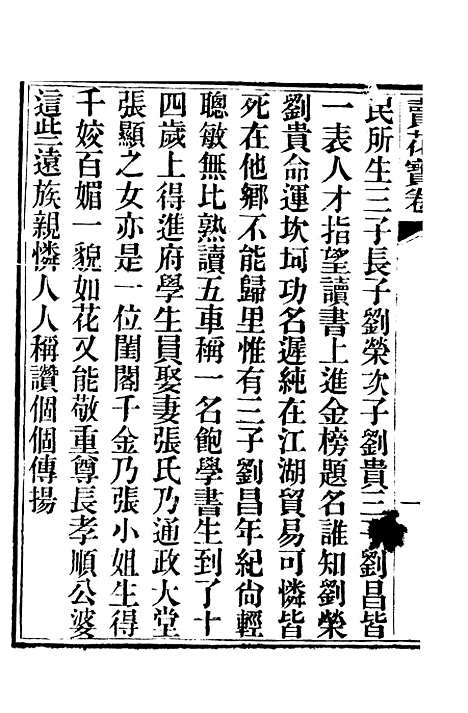 賣花寶卷
民所生三子長子劉榮次子劉貴三子劉昌皆
一表人才指望讀書上進金榜題名誰知劉榮
劉貴命運坎坷功名遲純在江湖貿易可憐皆
死在他鄉不能歸里惟有三子劉昌年紀尙輕
聰敏無比熟讀五車稱一名飽學書生到了十
四歲上得進府學生員娶妻張氏乃通政大堂
張顯之女亦是一位閨閣千金乃張小姐生得
千姣百媚一貌如花又能敬重尊長孝順公婆
這些遠族親憐人人稱讚個個傳揚